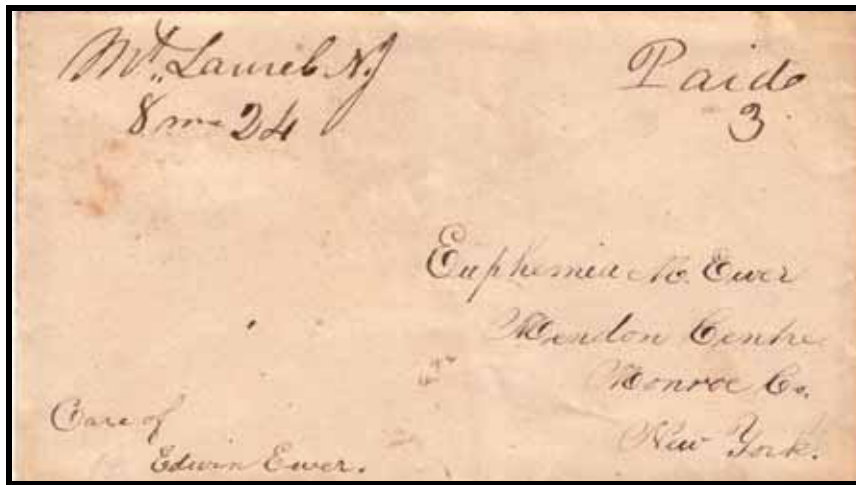 Mt. Laurel N.J
8 mo 24
Paid
3
Euphemia M. Ewer
Mendon Centre
Monroe Co.
New York.
Care of
Edwin Ewer.